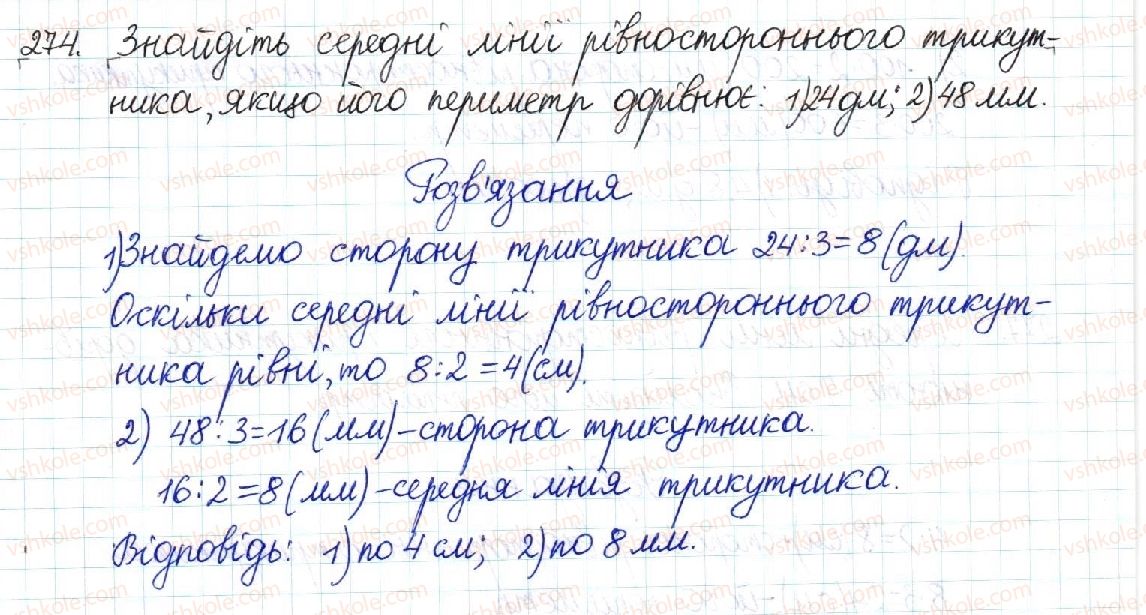 274. Знайдіть середні лінії рівностороннього трикут-
ника, якщо його периметр дорівнює: 1) 24 дм; 2) 48 мм.
Розв'язання
1) Знайдемо сторону трикутника 24:3=8 (дм).
Оскільки середні лінії рівностороннього трикут-
ника рівні, то 8:2=4(см).
2) 48:3=16 (мм)-сторона трикутника.
16:2=8 (мм)-середня лінія трикутника.
Відповідь: 1) по 4 см; 2) по 8 мм.